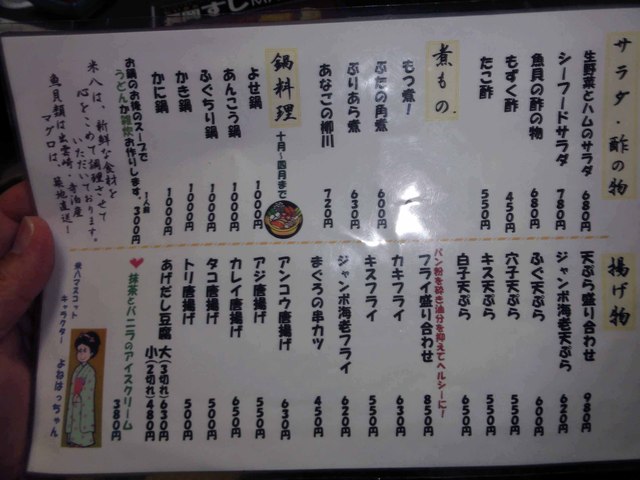 サラダ・酢の物
生野菜とハムのサラダ 680円
シーフードサラダ 780円
魚貝の酢の物 680円
もずく酢 450円
たこ酢 550円
煮もの
もつ煮!
ぶたの角煮 600円
ぶりあら煮 630円
あなごの柳川 720円
鍋料理 十月~四月まで
よせ鍋 1000円
あんこう鍋 1000円
ふぐちり鍋 1000円
かき鍋 1000円
かに鍋 1000円
1人前
お鍋のお後のスープで
うどんか雑炊お作りします。 300円
米八は、新鮮な食材を
心をこめて調理させて
いただいております。
魚貝類は出雲崎・寺泊産
マグロは、築地直送!
揚げ物
天ぷら盛り合わせ 980円
ジャンボ海老天ぷら 620円
ふぐ天ぷら 600円
穴子天ぷら 550円
キス天ぷら 550円
白子天ぷら 650円
パン粉を砕き油分を抑えてヘルシーに!
フライ盛り合わせ 850円
カキフライ 630円
キスフライ 550円
ジャンボ海老フライ 620円
まぐろの串カツ 450円
アンコウ唐揚げ 630円
アジ唐揚げ 550円
カレイ唐揚げ 650円
タコ唐揚げ 500円
トリ唐揚げ 500円
あげだし豆腐 大(3切れ)630円
小(2切れ)480円
抹茶とバニラのアイスクリーム 380円
米八マスコット
キャラクター
よねはっちゃん